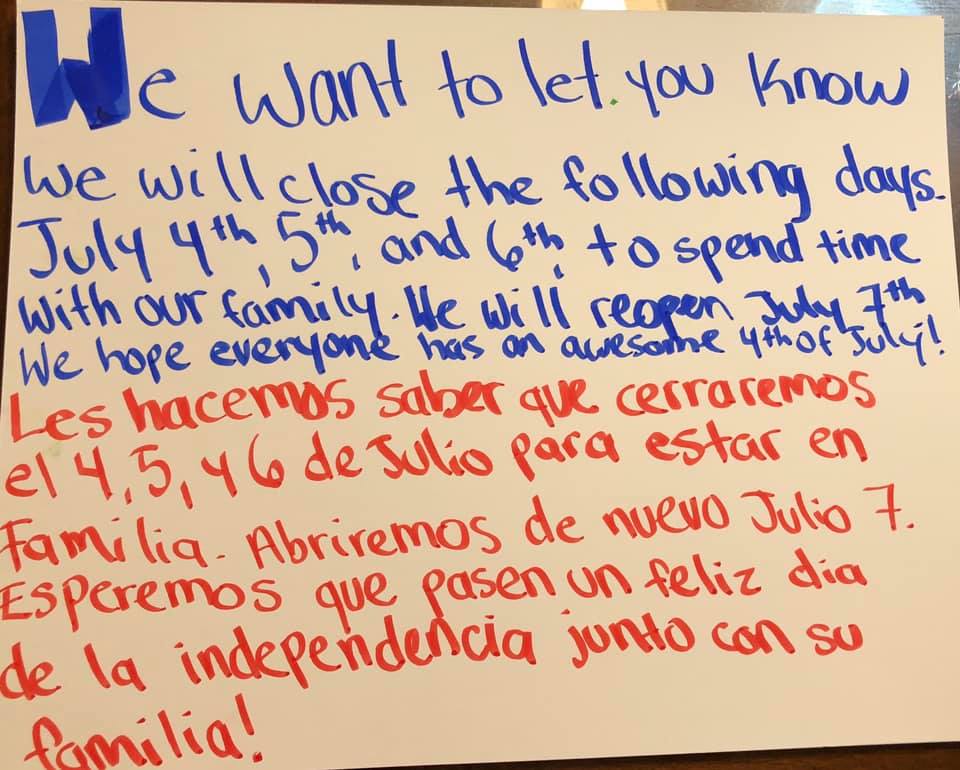 We want to let you know
we will close the following days.
July 4th, 5th, and 6th, to spend time
with our family. We will reopen July 7th
We hope everyone has an awesome 4th of July!
Les hacemos saber que cerraremos
el 4, 5, y 6 de Julio para estar en
Familia. Abriremos de nuevo Julio 7.
Esperemos que pasen un feliz dia
de la independencia junto con su
familia!